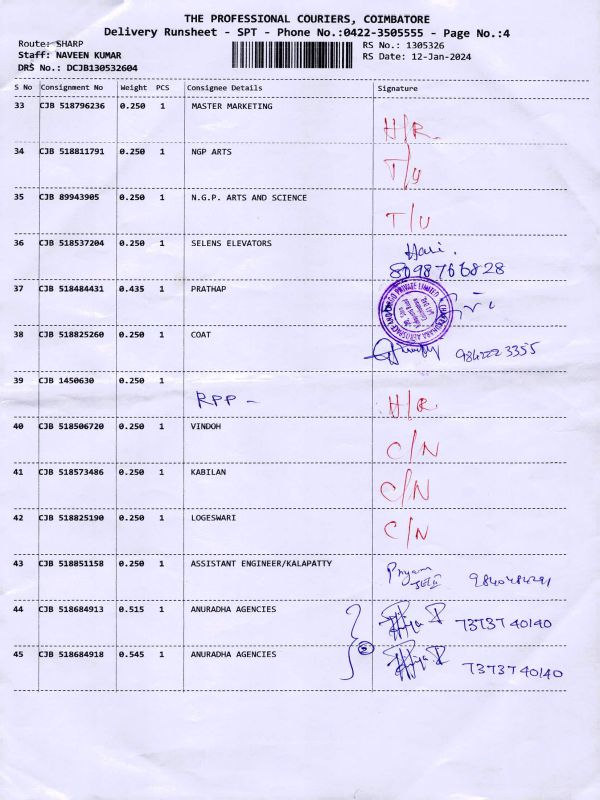 THE PROFESSIONAL COURIERS, COIMBATORE
Delivery Runsheet - SPT - Phone No.:0422-3505555 - Page No.:4
Route: SHARP
RS No.: 1305326
Staff: NAVEEN KUMAR
RS Date: 12-Jan-2024
DRS No.: DCJB130532604
S No Consignment No Weight PCS Consignee Details Signature
33 CJB 518796236 0.250 1 MASTER MARKETING
H/R
34 CJB 518811791 0.250 1 NGP ARTS
T/U
35 CJB 89943905 0.250 1 N.G.P. ARTS AND SCIENCE
T/U
36 CJB 518537204 0.250 1 SELENS ELEVATORS
Hari.
8098766828
37 CJB 518484431 0.435 1 PRATHAP
38 CJB 518825260 0.250 1 COAT
9842223355
39 CJB 1450630 0.250 1
RPP - H/R
40 CJB 518506720 0.250 1 VINDOH
C/N
41 CJB 518573486 0.250 1 KABILAN
C/N
42 CJB 518825190 0.250 1 LOGESWARI
C/N
43 CJB 518851158 0.250 1 ASSISTANT ENGINEER/KALAPATTY
44 CJB 518684913 0.515 1 ANURADHA AGENCIES
73737 40140
45 CJB 518684918 0.545 1 ANURADHA AGENCIES
73737 40140